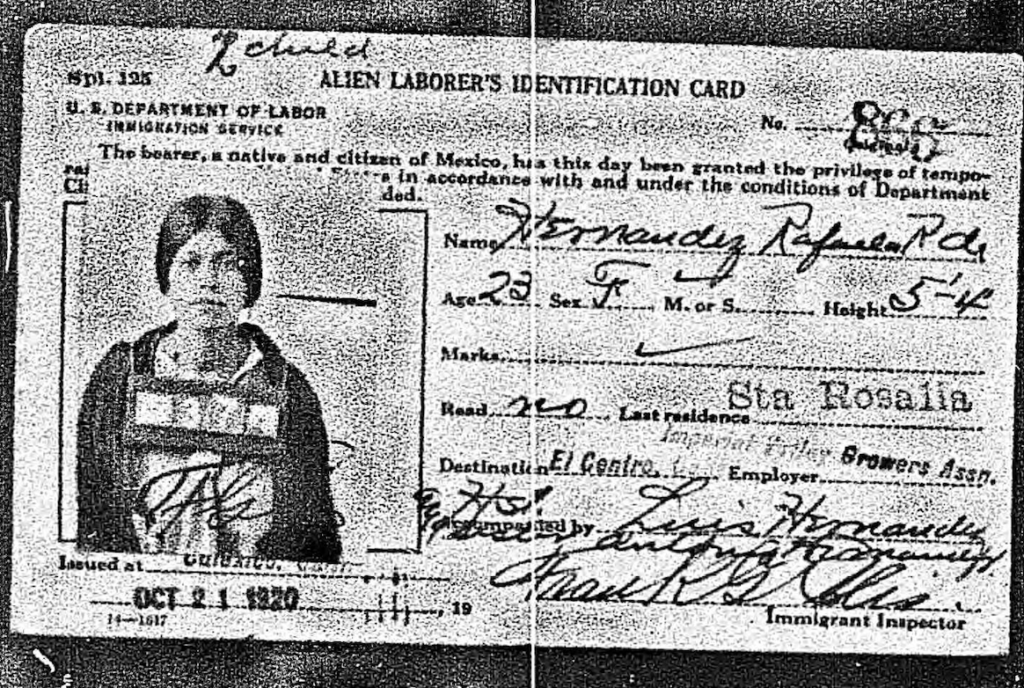 child
Spl. 125
ALIEN LABORER'S IDENTIFICATION CARD
U. S. DEPARTMENT OF LABOR
IMMIGRATION SERVICE
No.
The bearer, a native and citizen of Mexico, has this day been granted the privilege of tempo-
in accordance with and under the conditions of Department
ded.
Name Hernandez Rafaela R de
Age 23 Sex F M. or S. Height 5'-4
Marks
Read no Last residence Sta Rosalia
Imperial Valley Growers Assn.
Destination El Centro, Employer
Accompanied by Luis Hernandez
Antonio Hernandez
Issued at CALEXICO,
Frank G. Ellis
OCT 21 1920, 19
14—1617
Immigrant Inspector